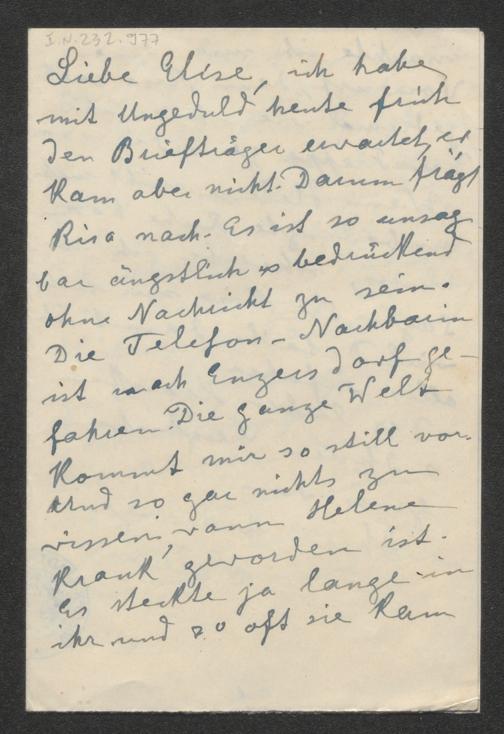 I.N. 232.977
Liebe Elise, ich habe
mit Ungeduld heute früh
den Briefträger erwartet, er
kam aber nicht. Darum frägt
Risa nach. Es ist so unsag
bar ängstlich bedrückend
ohne Nachricht zu sein.
Die Telefon-Nachbarin
ist nach Enzersdorf ge-
fahren. Die ganze Welt
kommt mir so still vor.
Und so gar nichts zu
wissen, wann Helene
krank geworden ist.
Es steckte ja lange in
ihr und so oft sie kam